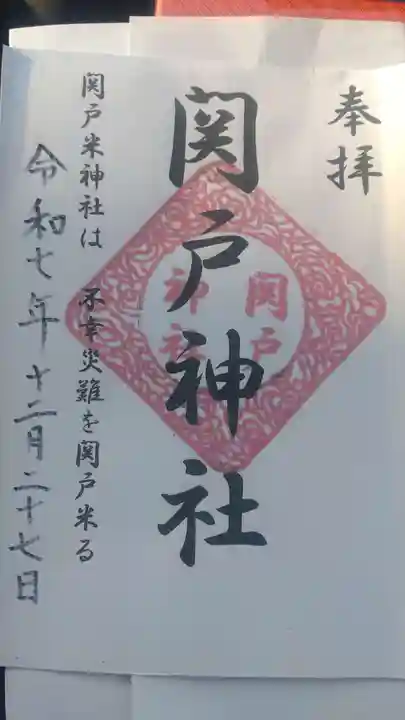 奉拝
関戸神社
関戸
神社
関戸米神社は 不幸災難を関戸米る
令和七年十二月二十七日